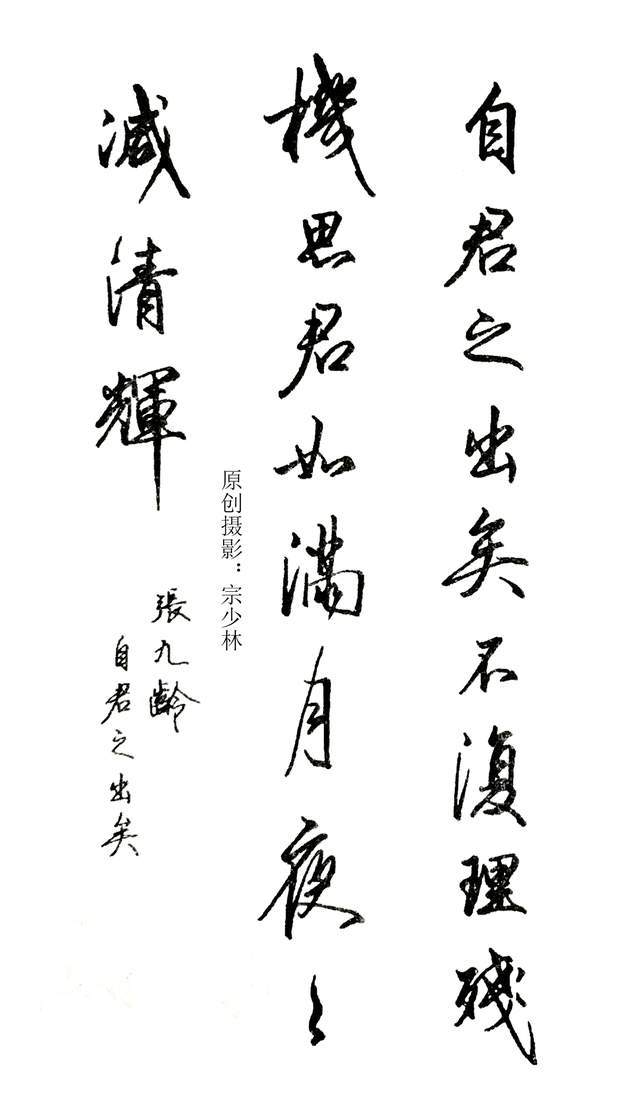 自君之出矣不復理殘
機思君如滿月夜々
減清輝
張九齡
自君之出矣
原创摄影：宗少林